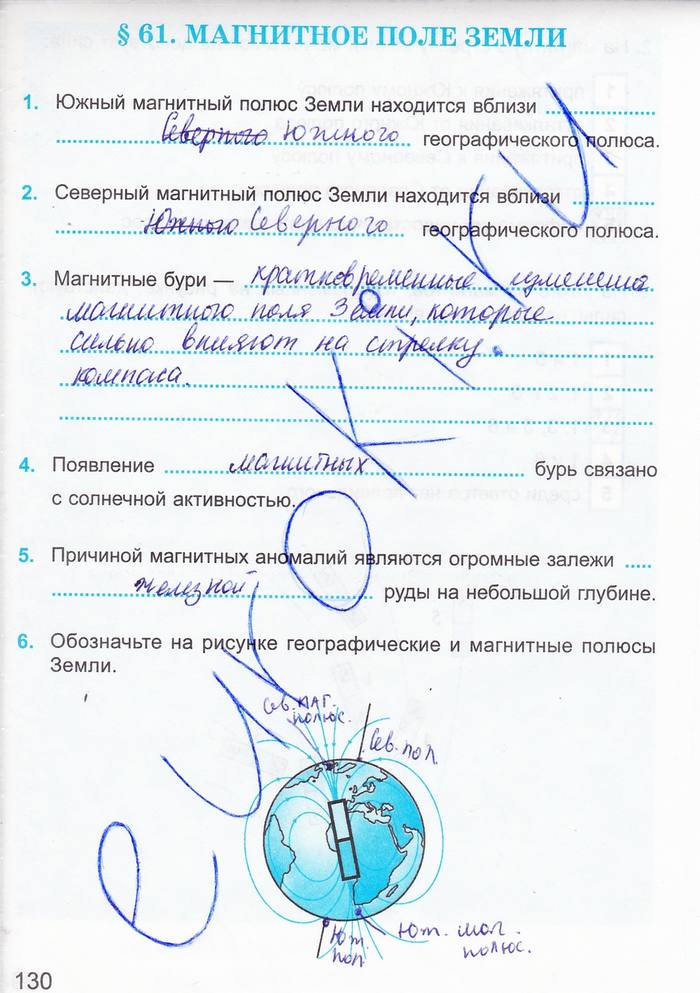 § 61. МАГНИТНОЕ ПОЛЕ ЗЕМЛИ
1. Южный магнитный полюс Земли находится вблизи
Северного Южного географического полюса.
2. Северный магнитный полюс Земли находится вблизи
Южного Северного географического полюса.
3. Магнитные бури — кратковременные изменения
магнитного поля Земли, которые
сильно влияют на стрелку
компаса.
4. Появление магнитных бурь связано
с солнечной активностью.
5. Причиной магнитных аномалий являются огромные залежи
железной руды на небольшой глубине.
6. Обозначьте на рисунке географические и магнитные полюсы
Земли.
Сев. маг.
полюс.
Сев. пол.
Юж.
пол.
Юж. маг.
полюс.
130
еуроки.ru